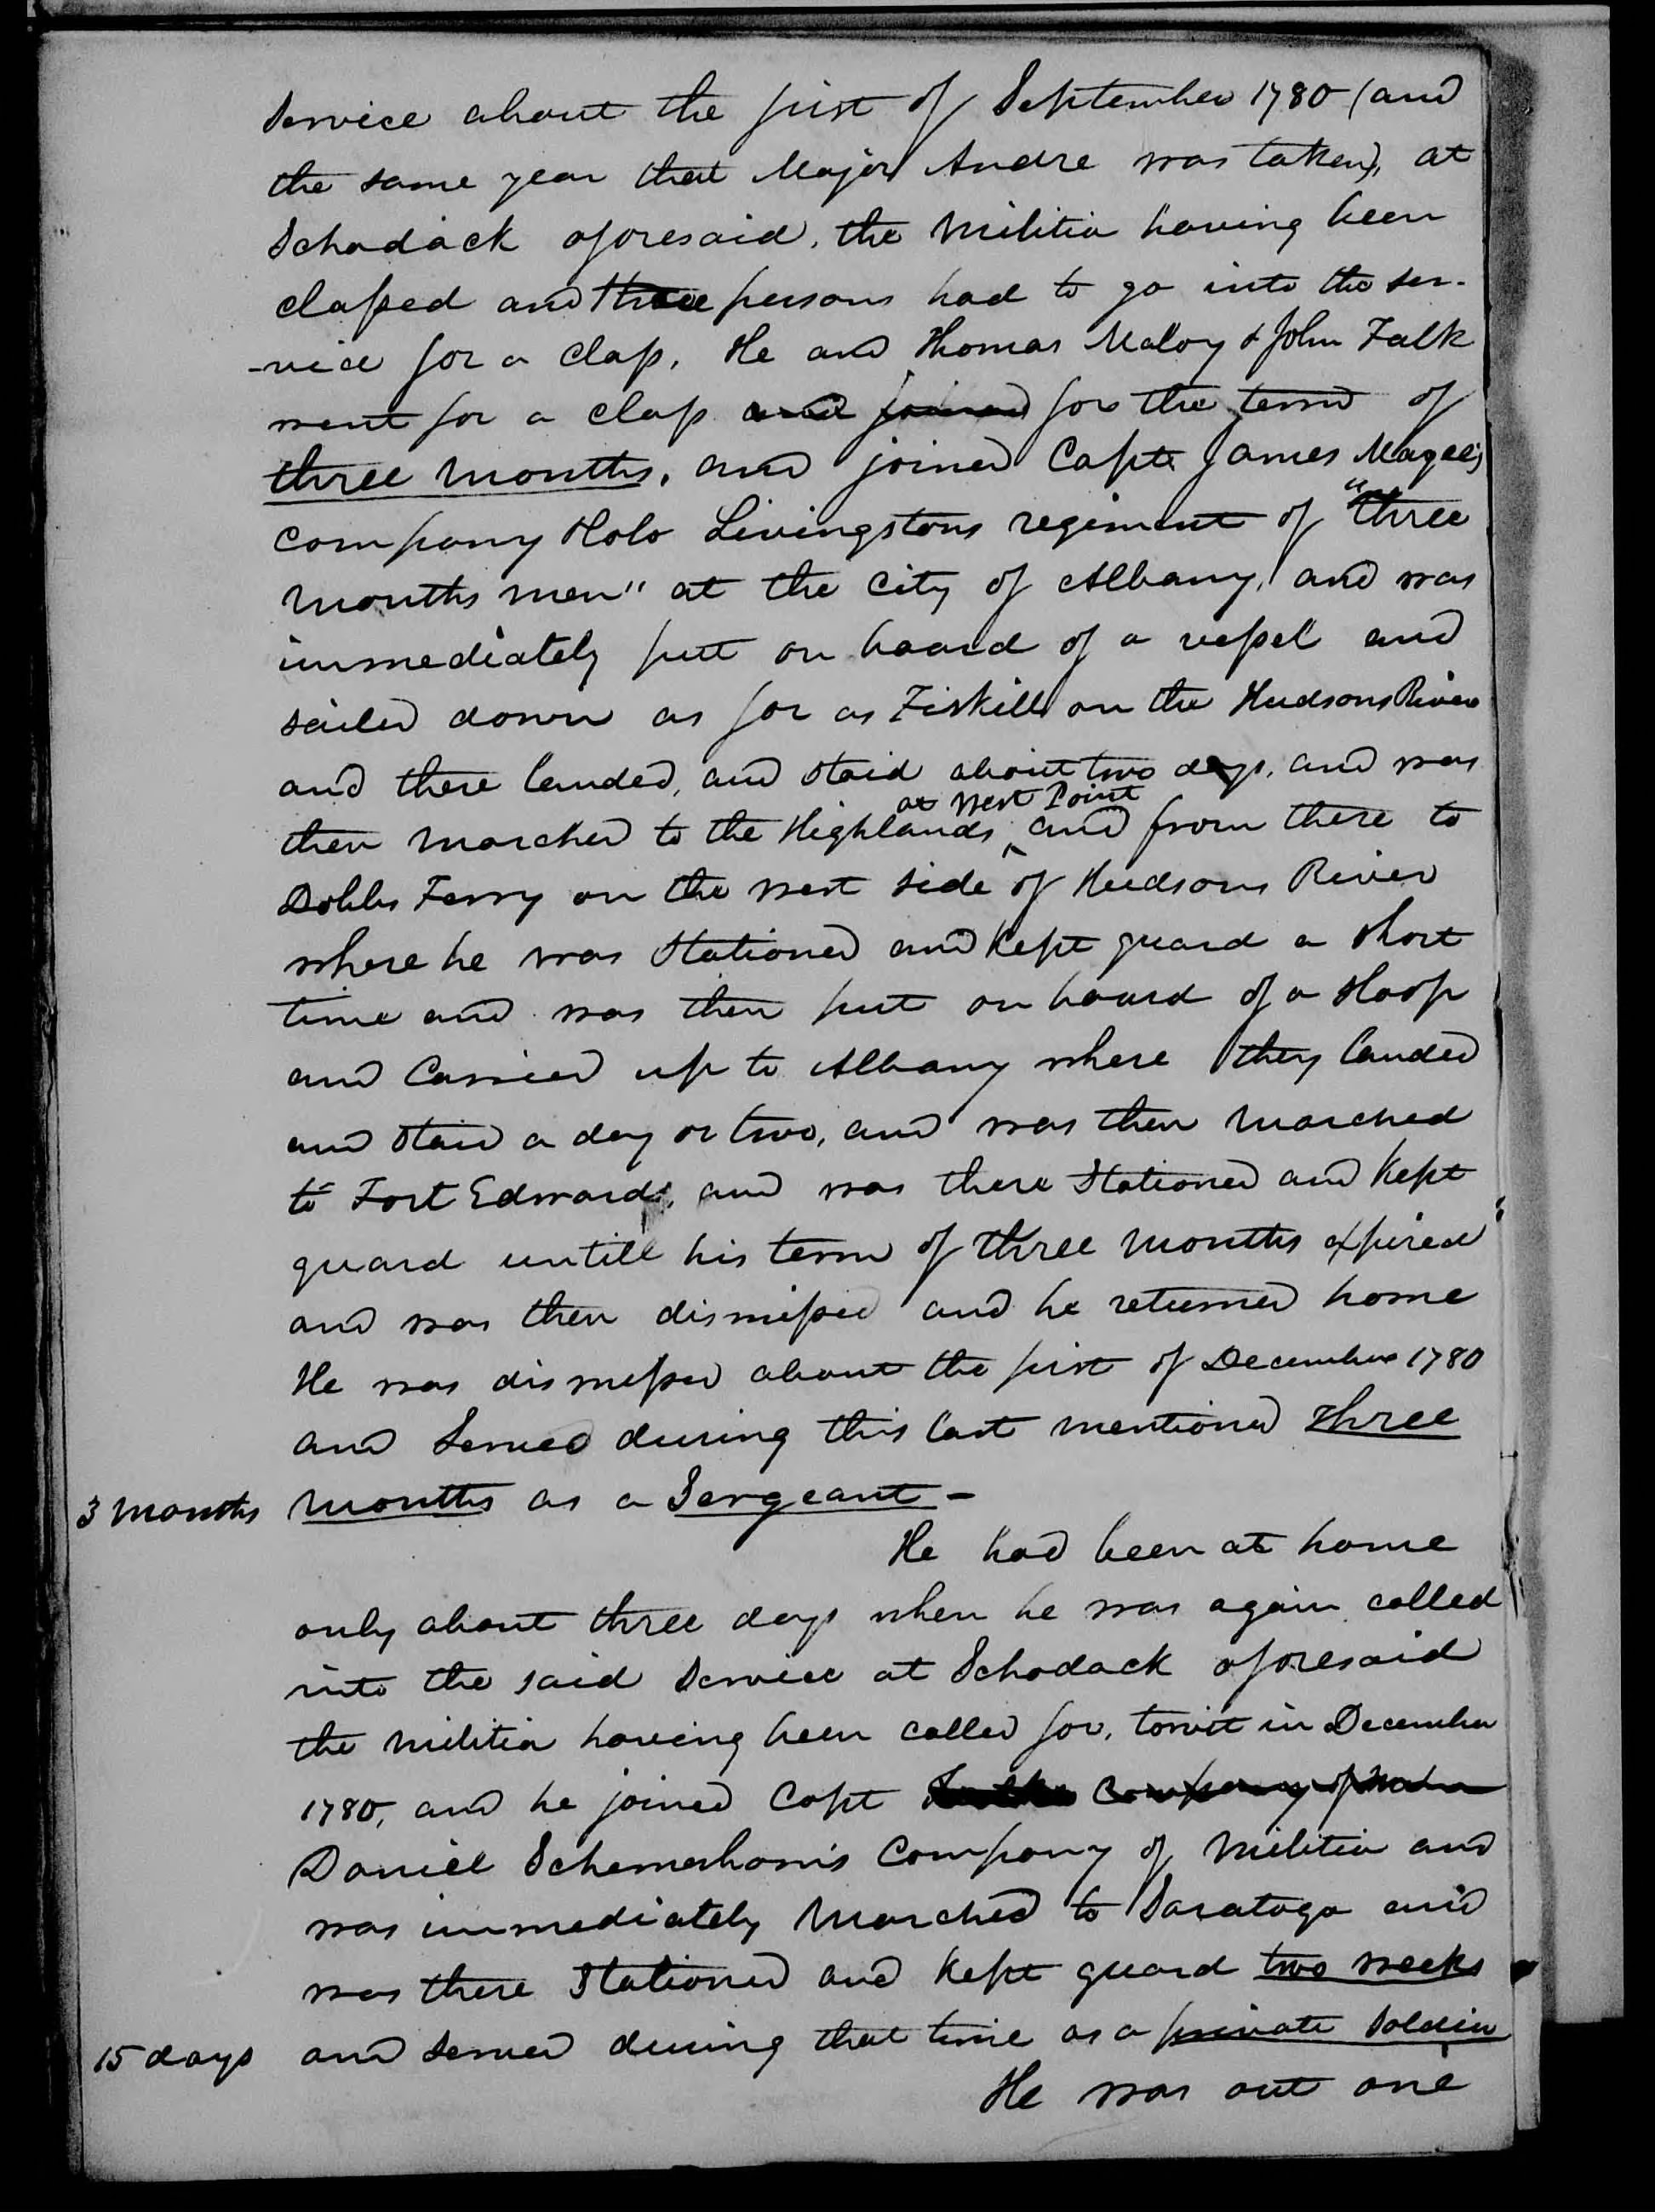 Service about the first of September 1780 (and
the same year that Major Andre was taken), at
Schodack aforesaid, the militia having been
classed and three persons had to go into the ser-
-vice for a class. He and Thomas Maloy & John Falk
went for a class and joined for the term of
three months, and joined Capt. James Magee's
company Colo Livingstons regiment of "three
months men" at the City of Albany, and was
immediately put on board of a vessel and
sailed down as far as Fiskill on the Hudsons River
and there landed, and staid about two days, and was
at West Point
then marched to the Highlands ^ and from there to
Dobbs Ferry on the west side of Hudsons River
where he was Stationed and kept guard a short
time and was then put on board of a sloop
and Carried up to Albany where they landed
and staid a day or two, and was then marched
to Fort Edward, and was there Stationed and kept
guard untill his term of three months expired
and was then dismissed and he returned home
He was dismissed about the first of December 1780
and Served during this last mentioned three
3 months months as a Sergeant -
He had been at home
only about three days when he was again called
into the said Service at Schodack aforesaid
the militia having been called for, towit in December
1780, and he joined Capt company of
Daniel Schermerhorn's Company of militia and
was immediately marched to Saratoga and
was there Stationed and kept guard two weeks
15 days and served during that time as a private soldier
He was out one